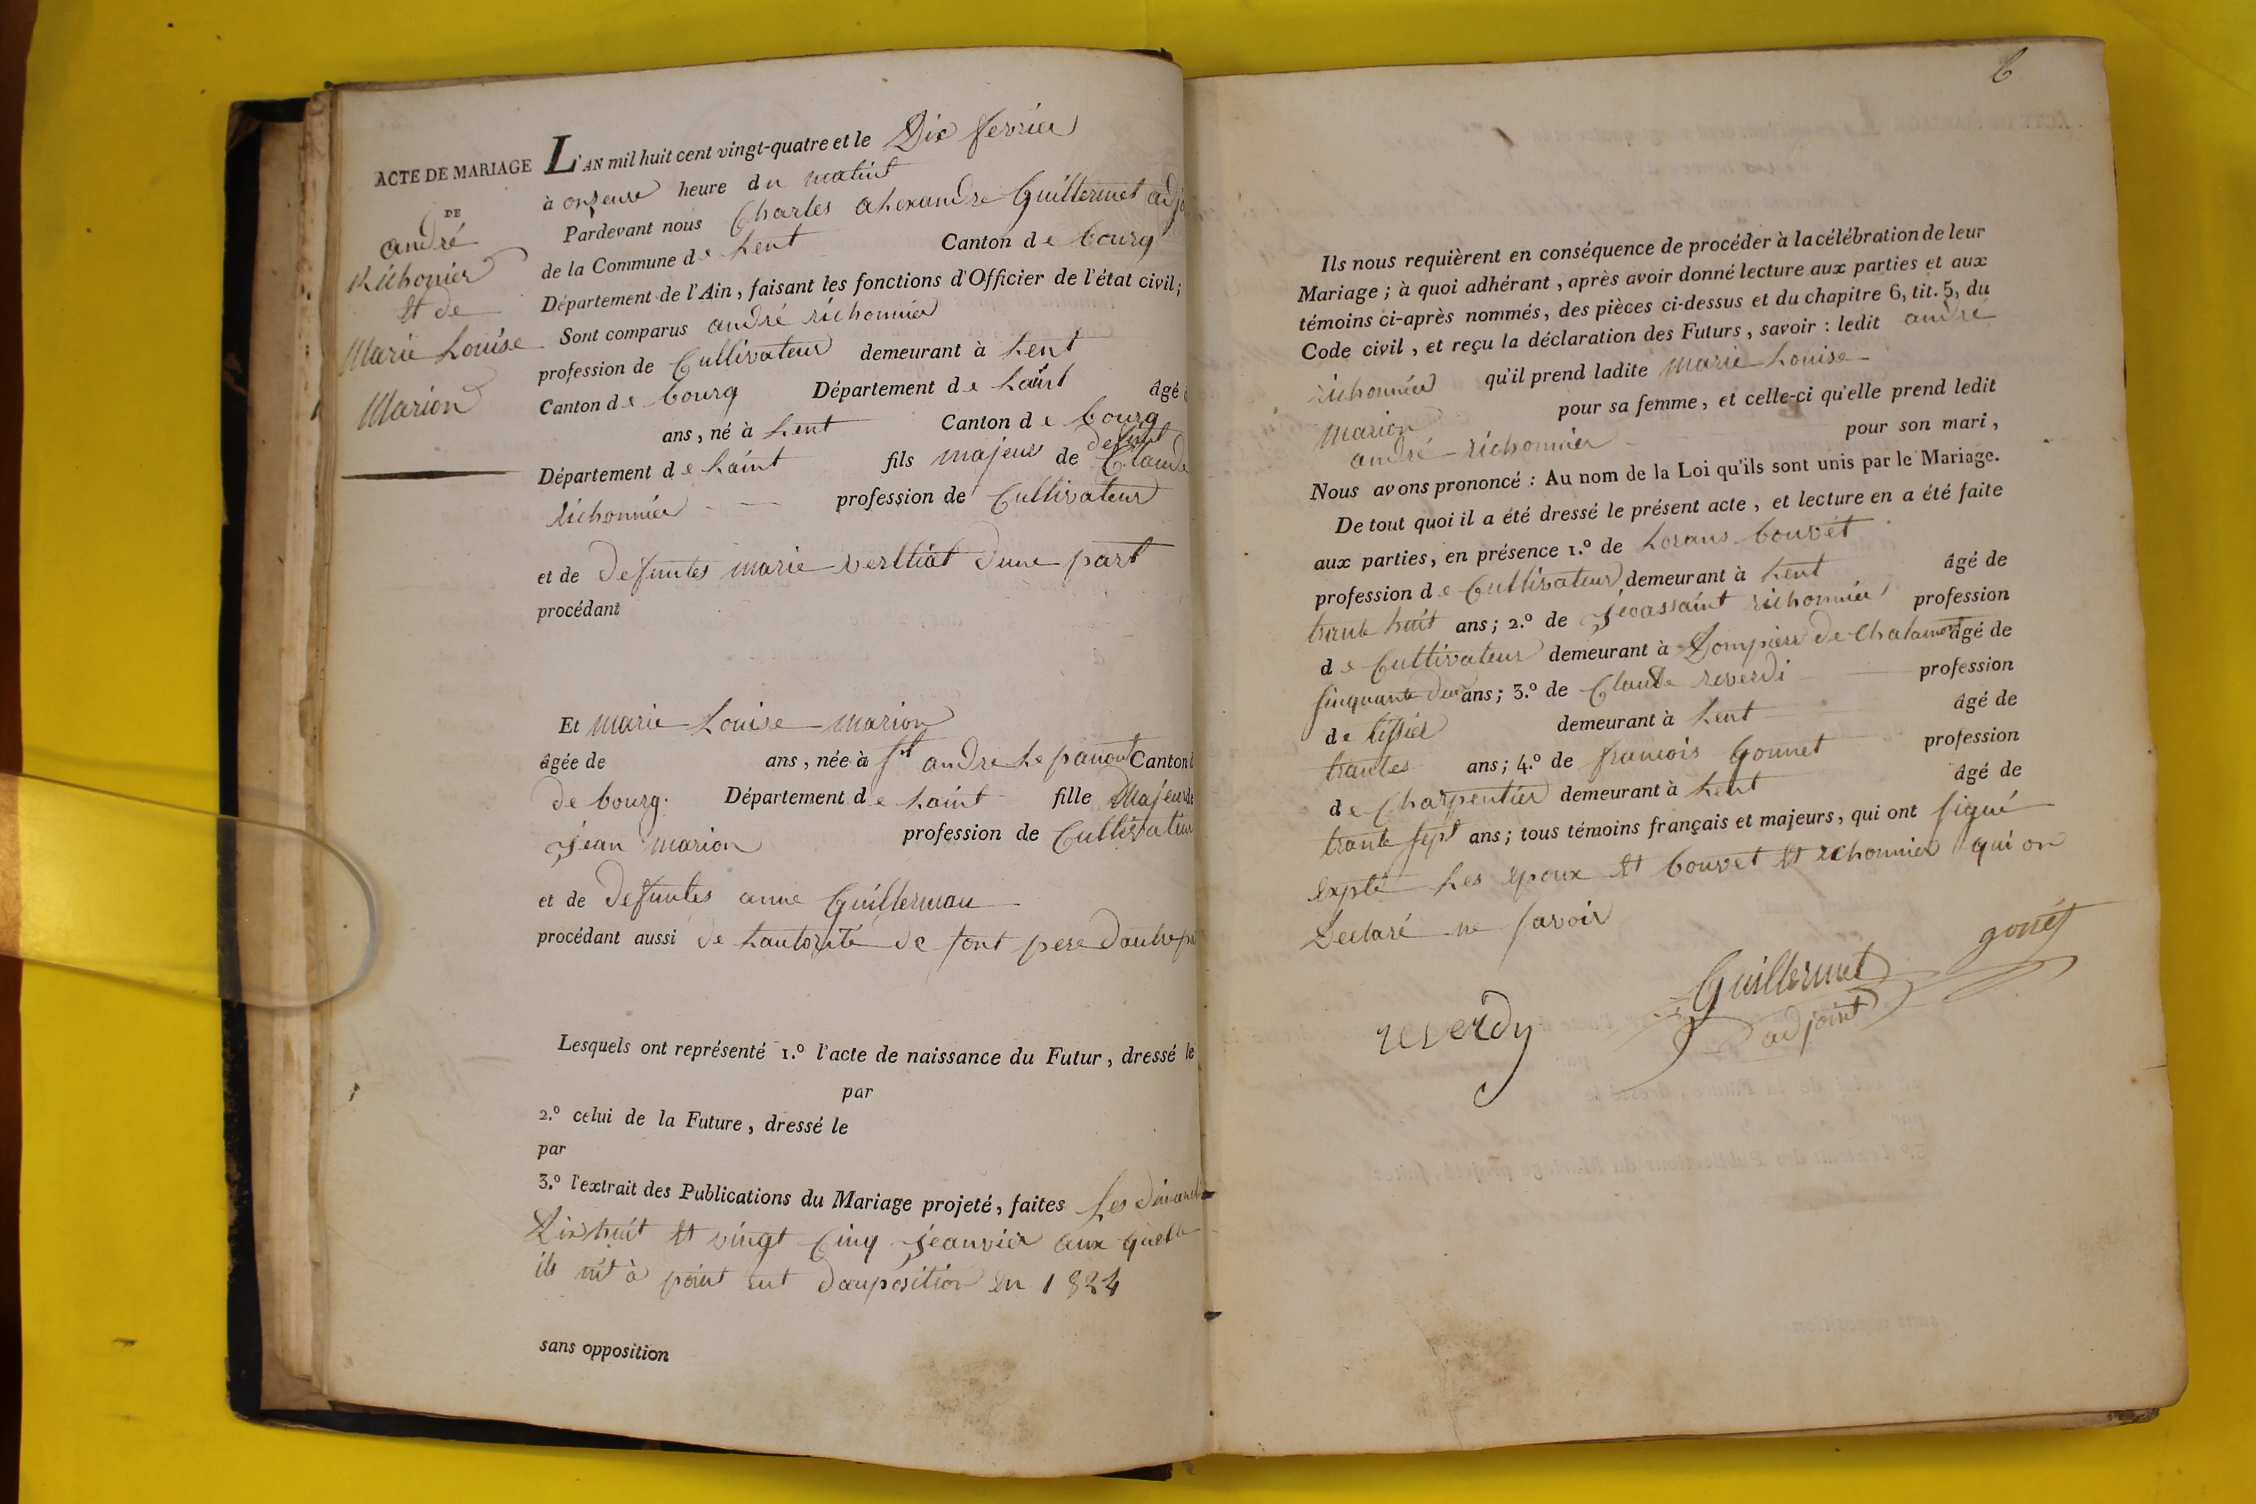 ACTE DE MARIAGE
DE
andré
Richonier
et de
Marie Louise
Marion
L'AN mil huit cent vingt-quatre et le Dix fevrier
à onzeure heure du matint
Pardevant nous Charles alexandre Guillermet adj
de la Commune de Lent Canton de bourg
Département de l'Ain, faisant les fonctions d'Officier de l'état civil;
Sont comparus andré richonnier
profession de Cultivateur demeurant à Lent
Canton de bourg Département de Laint âgé
ans, né à Lent Canton de bourg
defunt
Département de Laint fils majeur de Claude
richonnier profession de Cultivateur
et de defuntes marie verlliat dune part
procédant
Et marie Louise marion
âgée de ans, née à st andre Le panout Canton
de bourg. Département de Laint fille Majeur de
jean marion profession de Cultivateur
et de defuntes anne Guillermau
procédant aussi de Lautorité de sont pere dautre pa
Lesquels ont représenté 1.º l'acte de naissance du Futur, dressé le
par
2.º celui de la Future, dressé le
par
3.º l'extrait des Publications du Mariage projeté, faites Les dimanch
Dix huit et vingt Cinq jeanvier aux quels
ils nit à point eut daupósition en 1824
sans opposition
6
Ils nous requièrent en conséquence de procéder à la célébration de leur
Mariage; à quoi adhérant, après avoir donné lecture aux parties et aux
témoins ci-après nommés, des pièces ci-dessus et du chapitre 6, tit. 5, du
Code civil, et reçu la déclaration des Futurs, savoir: ledit andré
richonnier qu'il prend ladite marie Louise
marion pour sa femme, et celle-ci qu'elle prend ledit
andré richonnier pour son mari,
Nous avons prononcé: Au nom de la Loi qu'ils sont unis par le Mariage.
De tout quoi il a été dressé le présent acte, et lecture en a été faite
aux parties, en présence 1.º de Lorans bouvet
profession de Cultivateur demeurant à Lent âgé de
trante huit ans; 2.º de richonnier profession
de Cultivateur demeurant à Dompierr de Chalamont âgé de
sinquante deux ans; 3.º de Claude reverdi profession
de tissier demeurant à Lent âgé de
trantes ans; 4.º de francois Gonnet profession
de Charpentier demeurant à Lent âgé de
trante sept ans; tous témoins français et majeurs, qui ont signé
expté Les epoux et bouvet et richonnier qui on
Declaré ne savoir
reverdy
Guillermet
adjoint
gonét